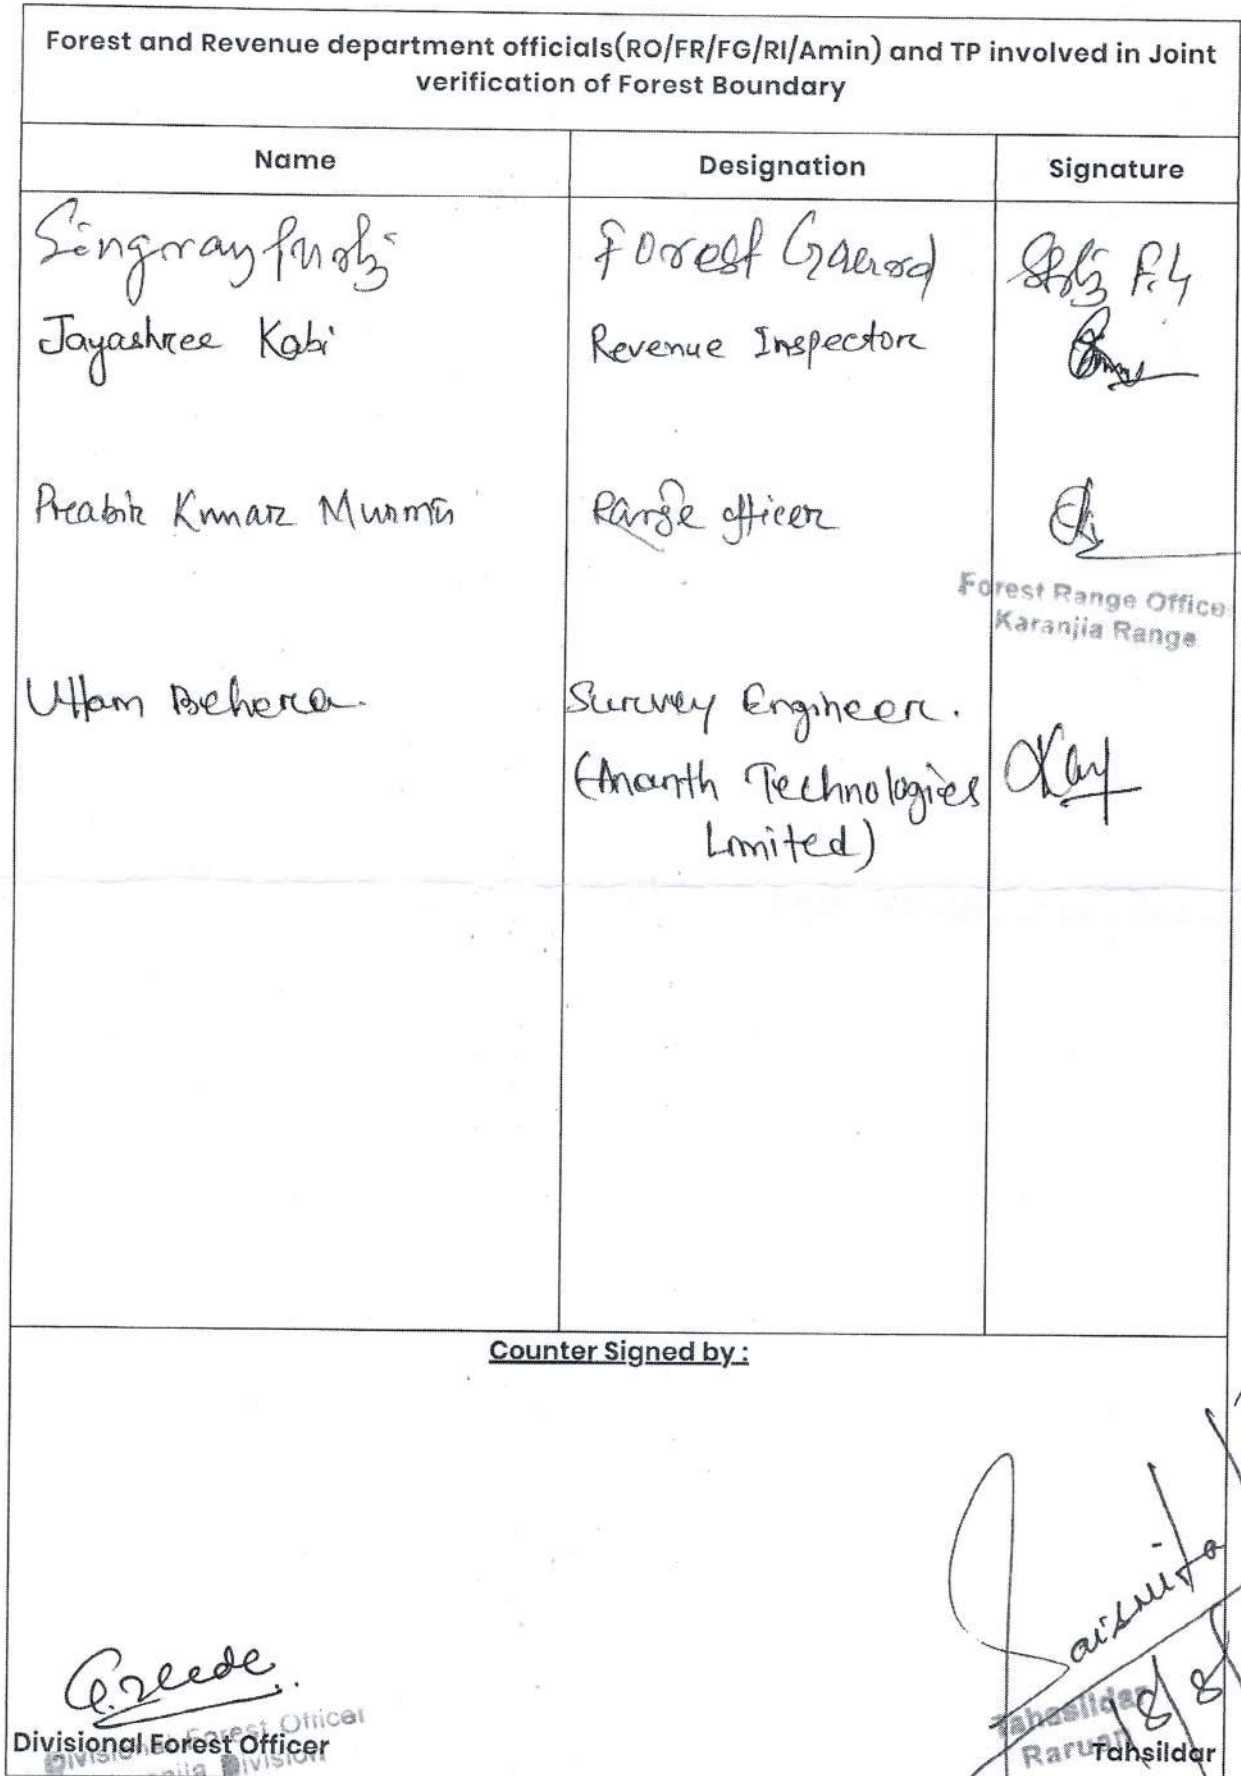 Forest and Revenue department officials(RO/FR/FG/RI/Amin) and TP involved in Joint
verification of Forest Boundary
Name Designation Signature
Singray Forest Guard
Jayashree Kabi Revenue Inspector
Preabir Kumar Murmu Range officer
Forest Range Office
Karanjia Range
Uttam Behera. Survey Engineer.
(Ananth Technologies
Limited)
Counter Signed by :
Divisional Forest Officer
Division
Divisional Forest Officer
Saismita
18/8
Tahasildar
Raruan
Tahsildar